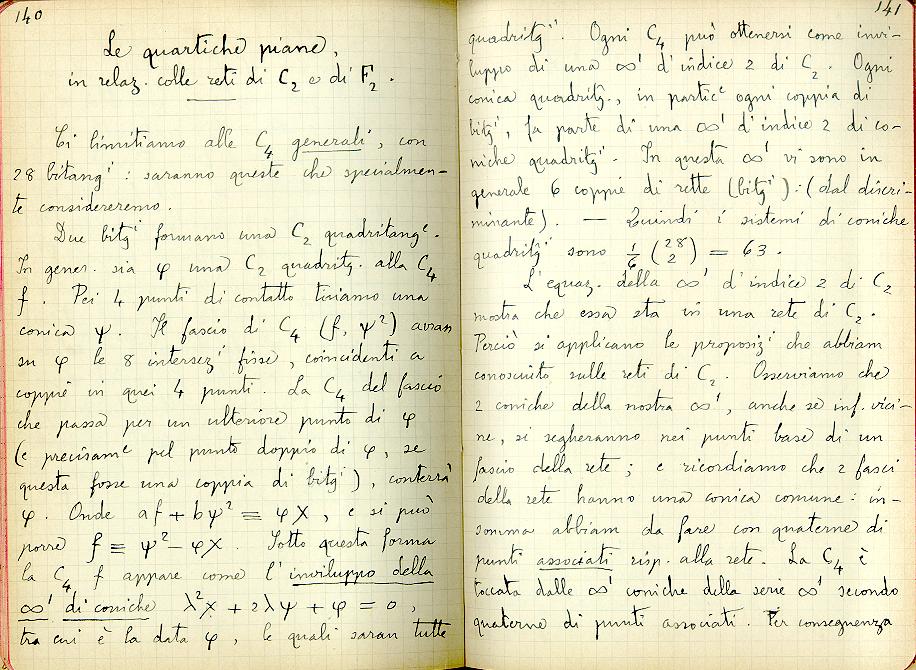 140
Le quartiche piane,
in relaz. colle reti di C₂ e di F₂.
Ci limitiamo alle C₄ generali, con
28 bitangⁱ: saranno queste che specialmen-
te considereremo.
Due bitgⁱ formano una C₂ quadritangᵉ.
In gener. sia φ una C₂ quadritg. alla C₄
f. Pei 4 punti di contatto tiriamo una
conica ψ. Il fascio di C₄ (f, ψ²) avran
su φ le 8 intersezⁱ fisse, coincidenti a
coppie in quei 4 punti. La C₄ del fascio
che passa per un ulteriore punto di φ
(e precisamᵉ pel punto doppio di φ, se
questa fosse una coppia di bitgⁱ), conterrà
φ. Onde af + bψ² ≡ φχ, e si può
porre f ≡ ψ² – φχ. Sotto questa forma
la C₄ f appare come l'inviluppo della
∞¹ di coniche λ²χ + 2λψ + φ = 0,
tra cui è la data φ, le quali saran tutte
141
quadritgⁱ. Ogni C₄ può ottenersi come invi-
luppo di una ∞¹ d'indice 2 di C₂. Ogni
conica quadritg., in particᵉ ogni coppia di
bitgⁱ, fa parte di una ∞¹ d'indice 2 di co-
niche quadritgⁱ. In questa ∞¹ vi sono in
generale 6 coppie di rette (bitgⁱ): (dal discri-
minante). — Quindi i sistemi di coniche
quadritgⁱ sono 1/6 (28 2) = 63.
L'equaz. della ∞¹ d'indice 2 di C₂
mostra che essa sta in una rete di C₂.
Perciò si applicano le proposizⁱ che abbiam
conosciuto sulle reti di C₂. Osserviamo che
2 coniche della nostra ∞¹, anche se inf. vici-
ne, si segheranno nei punti base di un
fascio della rete; e ricordiamo che 2 fasci
della rete hanno una conica comune: in-
somma abbiam da fare con quaterne di
punti associati risp. alla rete. La C₄ è
toccata dalle ∞¹ coniche della serie ∞¹ secondo
quaterne di punti associati. Per conseguenza